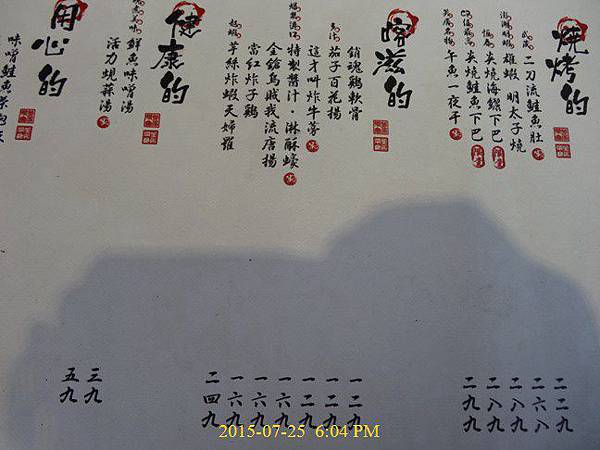 燒烤的
武藏
二刀流鮭魚肚
雄蝦 明太子燒
恆春
炙燒海鏍下巴
炙燒鮭魚下巴
午魚一夜干
喀滋的
銷魂雞軟骨
茄子百花揚
這才叫炸牛蒡
特製醬汁・淋酥蠔
金鎗烏賊我流唐揚
當紅炸子雞
芋絲炸蝦天婦羅
健康的
鮮魚味噌湯
活力蜆菇湯
用心的
味噌鮭魚茶泡
二二九
二六八
二八九
二八九
二九九
一二九
一二九
一二九
一六九
一六九
一六九
二四九
三九
五九
2015-07-25 6:04 PM